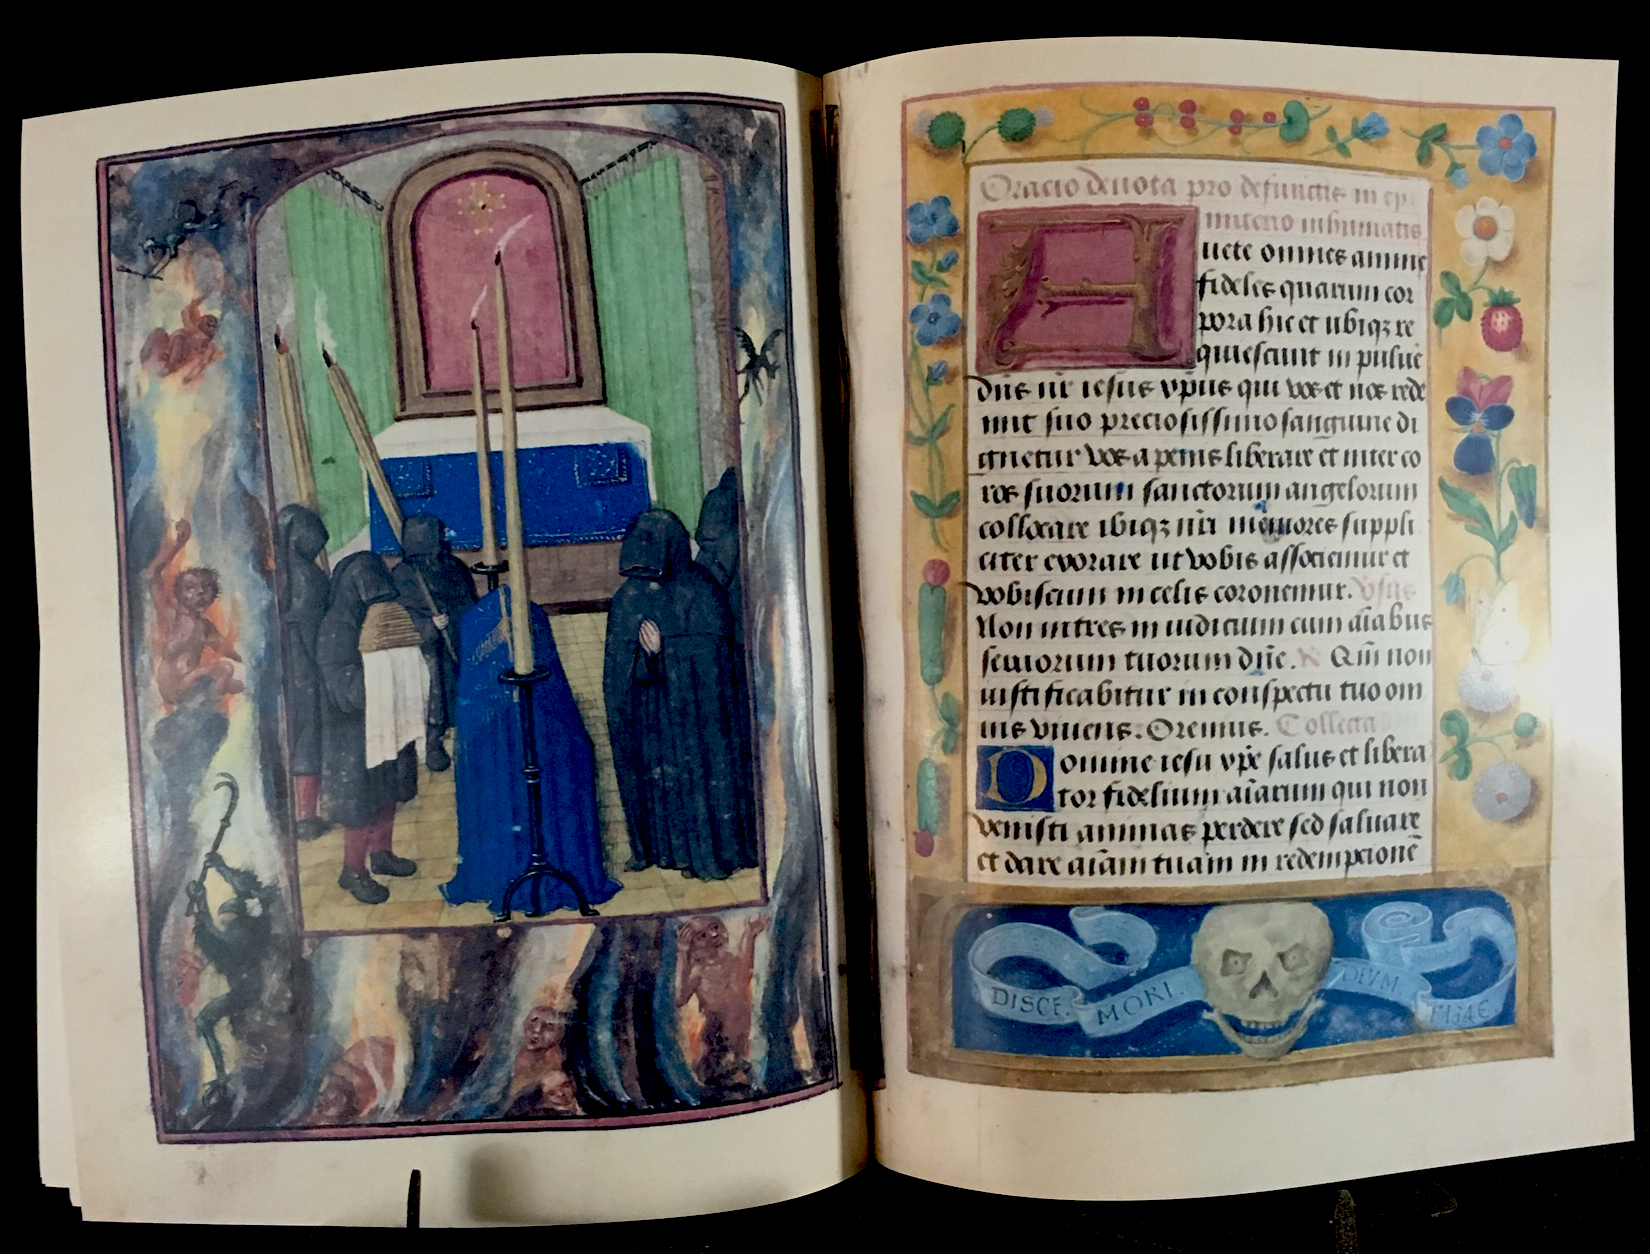 Oracio deuota pro defunctis in cy
miterio inhumatis
Auete omnes anime
fideles quarum cor
pora hic et ubiqꝫ re
quiescunt in puluere
dñs nr̄ iesus xp̄us qui vos et nos rede
mit suo preciosissimo sanguine di
gnetur vos a penis liberare et inter co
ros suorum sanctorum angelorum
collocare ibiqꝫ nr̄i memores suppli
citer exorare ut vobis associemur et
vobiscum in celis coronemur. Vsus
Non intres in iudicium cum aīabus
seruorum tuorum dn̄e. R Qm̄ non
iustificabitur in conspectu tuo om
nis viuens. Oremus. Collecta
Domine iesu xp̄e salus et libera
tor fidelium aīarum qui non
venisti animas perdere sed saluare
et dare aīam tuam in redempcionē
DISCE. MORI. DEVM. TIME.